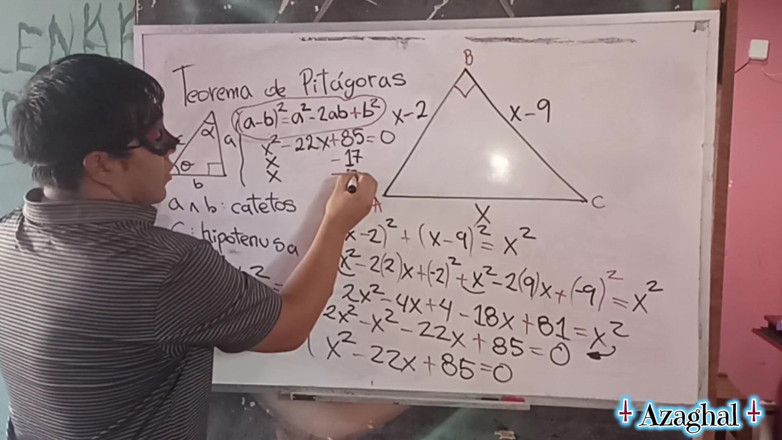 Teorema de Pitágoras
(a-b)²=a²-2ab+b²
x²-22x+85=0
x
-17
x
a
b
θ
α
a ∧ b: catetos
: hipotenusa
B
x-2
x-9
A
x
C
x-2)²+(x-9)²=x²
x²-2(2)x+(-2)²+x²-2(9)x+(-9)²=x²
2x²-4x+4-18x+81=x²
2x²-x²-22x+85=0
x²-22x+85=0
Azaghal